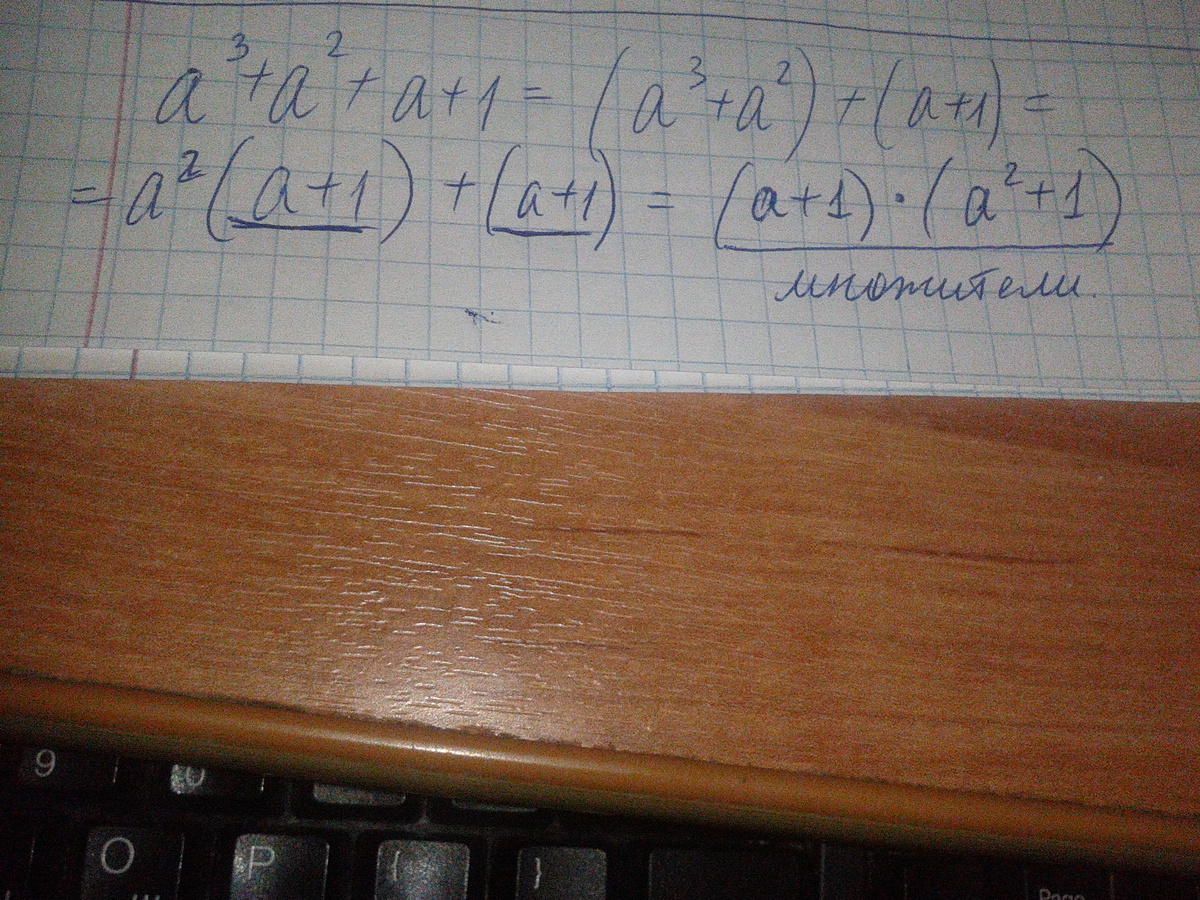 a³+a²+a+1=(a³+a²)+(a+1)=
=a²(a+1)+(a+1)=(a+1)·(a²+1)
множители.
9
O P { }
Page